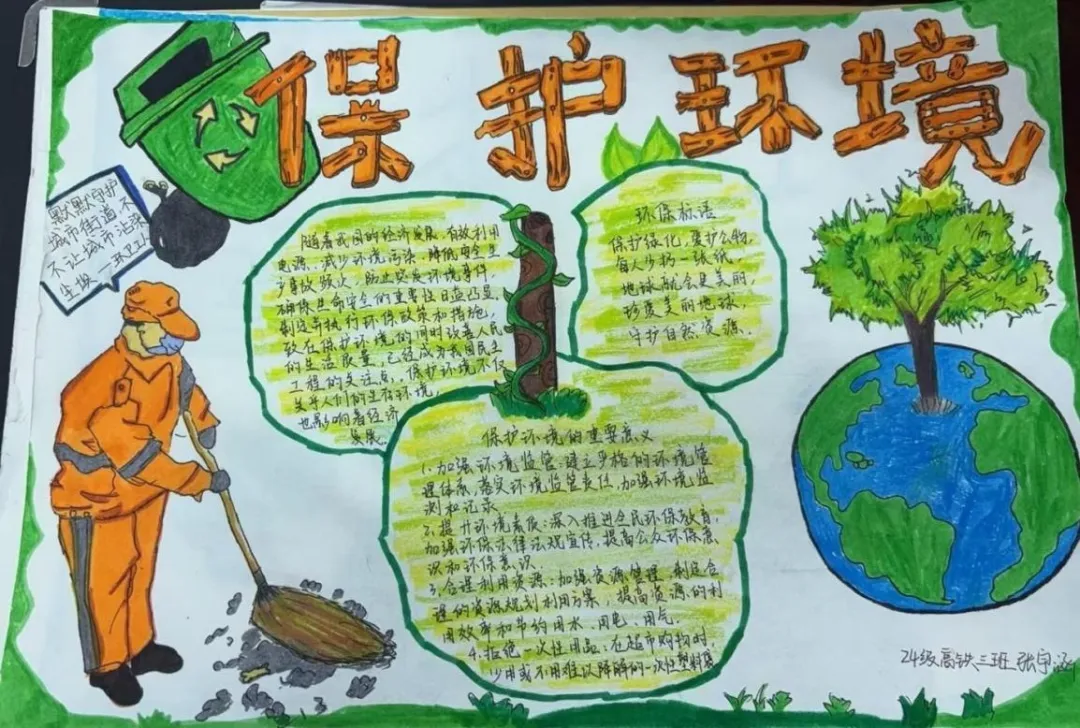 保护环境
默默守护
城市街道不
不让城市沾染
尘埃 —环卫工人
随着我国的经济发展,有效利用
电源,减少环境污染,降低安全生
产事故频次,防止突发环境事件,
确保生命安全的重要性日益凸显,
制定并执行环保政策和措施,
致在保护环境的同时改善人民
的生活质量,已经成为我国民生
工程的关注点。保护环境不仅
关乎人们的生存环境,
也影响着经济
发展
环保标语
保护绿化,爱护公物,
每人少扔一张纸,
地球就会更美丽,
珍爱美丽地球,
守护自然资源。
保护环境的重要意义
1.加强环境监管:建立严格的环境管
理体系,落实环境监管责任,加强环境监
测和记录
2.提升环境素质:深入推进全民环保教育,
加强环保法律法规宣传,提高公众环保意
识和环保意识
3.合理利用资源:加强资源管理,制定合
理的资源规划利用方案,提高资源的利
用效率和节约用水、用电、用气.
4.拒绝一次性用品:在超市购物时,
少用或不用难以降解的一次性塑料袋
24级高铁三班 张宇涵